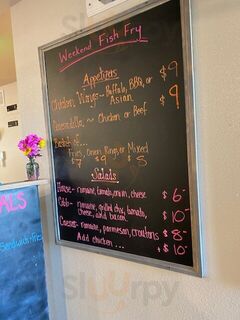 Weekend Fish Fry
Appetizers
Chicken Wings ~ Buffalo, BBQ, or $9
Asian
Quesadilla ~ Chicken or Beef $9
Basket of...
Fries, Onion Rings, or Mixed
$7 $9 $8
Salads
House - romaine, tomato, onion, cheese $6-
Cobb - romaine, grilled chix, tomato, $10-
cheese, bacon
Caesar - romaine, parmesan, croutons $8-
Add chicken... + $10-
ALS
Sandwich + Fries